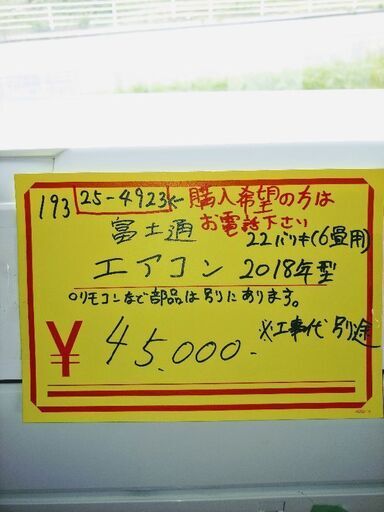 193 25-4923 ← 購入希望の方は
お電話下さい
富士通 22バリキ(6畳用)
エアコン 2018年型
○リモコンなど部品は別にあります。
※工事代別途
¥45,000.-